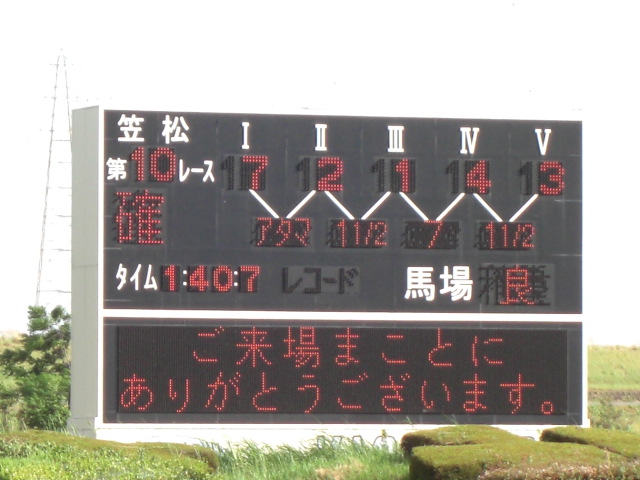 笠松 Ⅰ Ⅱ Ⅲ Ⅳ Ⅴ
第10レース 7 2 1 4 3
確 アタマ 11/2 7 11/2
タイム 1:40:7 レコード 馬場 良
ご来場まことに
ありがとうございます。